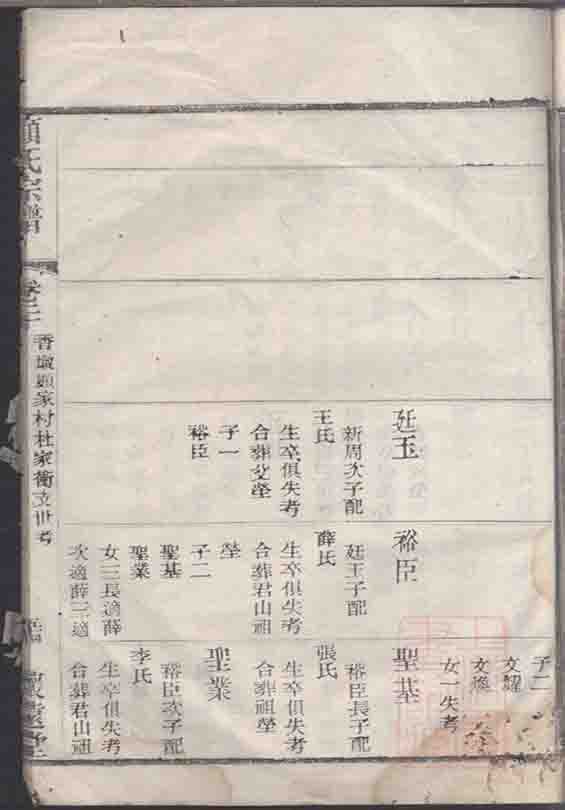 子二
文耀
文煥
女一失考
廷玉
新周次子配
王氏
生卒俱失考
合葬父塋
子一
裕臣
裕臣
廷玉子配
薛氏
生卒俱失考
合葬君山祖
塋
子二
聖基
聖業
女三長適薛
次適薛三適
聖基
裕臣長子配
張氏
生卒俱失考
合葬祖塋
聖業
裕臣次子配
李氏
生卒俱失考
合葬君山祖
顧氏宗譜
卷三
香墩顧家村杜家衖支世考